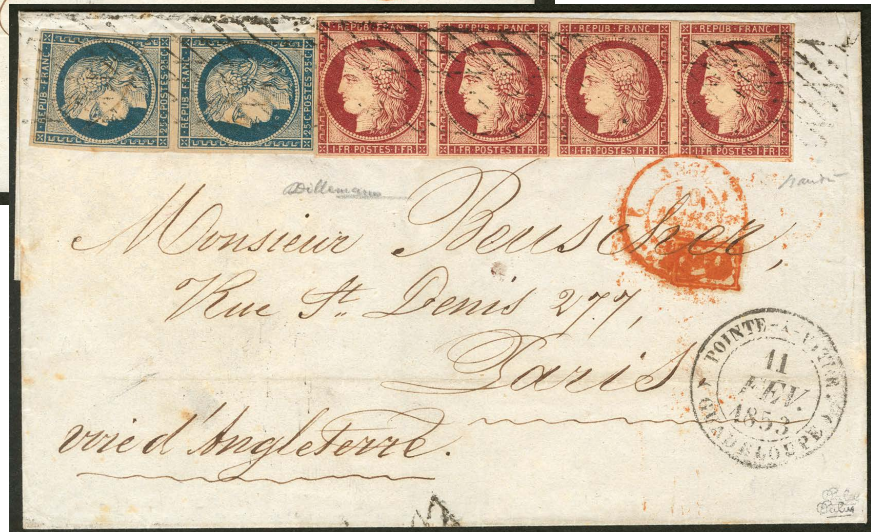 REPUB·FRANC·
25·C·POSTES·25·C·
REPUB·FRANC·
25·C·POSTES·25·C·
REPUB·FRANC·
1·FR·POSTES·1·FR·
REPUB·FRANC·
1·FR·POSTES·1·FR·
REPUB·FRANC·
1·FR·POSTES·1·FR·
REPUB·FRANC·
1·FR·POSTES·1·FR·
Dillemann
ANGL
Monsieur Beuscher,
Rue St. Denis 277,
Paris
voie d'Angleterre.
POINTE-A-PITRE
11
FEV.
1853
GUADELOUPE
Calves